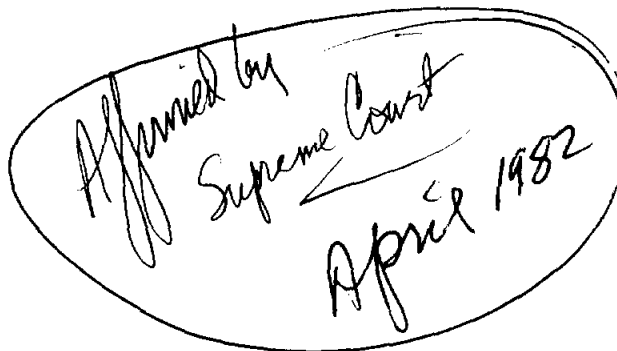 Affirmed by
Supreme Court
April 1982